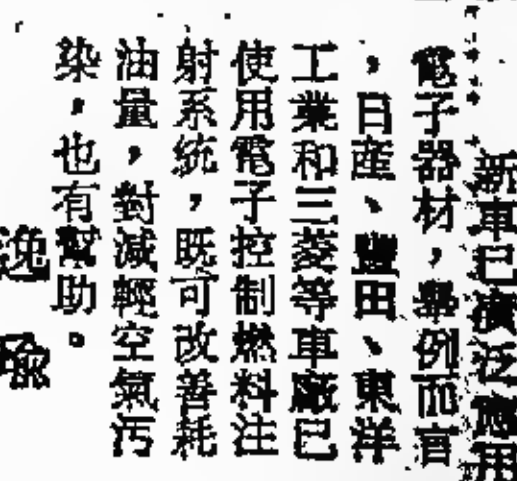 新車已廣泛應用
電子器材，舉例而言
，日産、豐田、東洋
工業和三菱等車廠已
使用電子控制燃料注
射系統，既可改善耗
油量，對減輕空氣污
染，也有幫助。
逸瑜